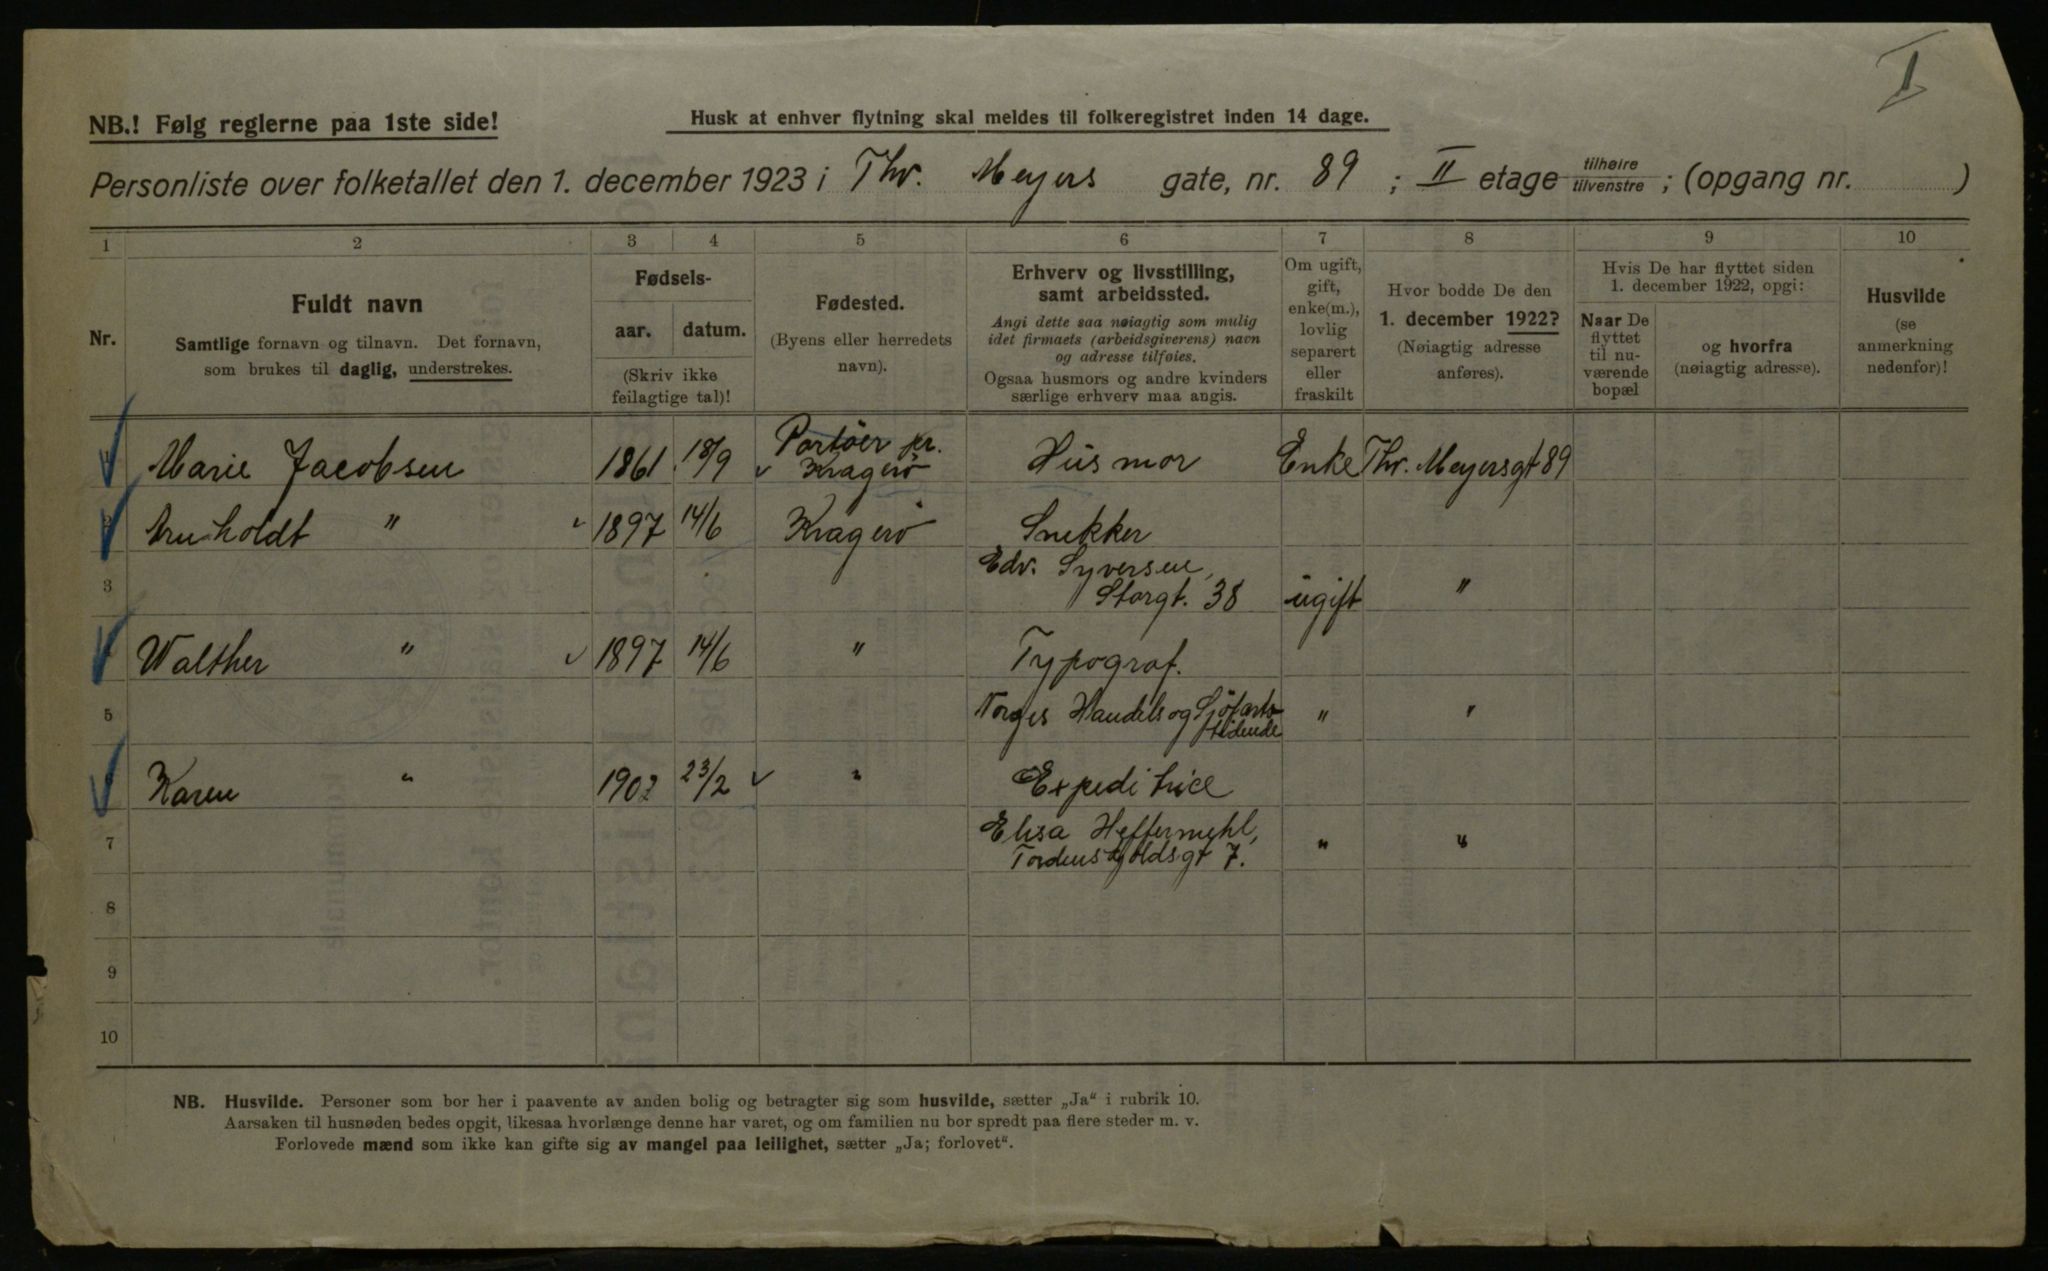 I
NB.! Følg reglerne paa 1ste side!
Husk at enhver flytning skal meldes til folkeregistret inden 14 dage.
Personliste over folketallet den 1. december 1923 i Thv. Meyers gate, nr. 89 ; II etage tilhøire tilvenstre ; (opgang nr. )
1 2 3 4 5 6 7 8 9 10
Nr.
Fuldt navn
Samtlige fornavn og tilnavn. Det fornavn,
som brukes til daglig, understrekes.
Fødsels-
aar. datum.
(Skriv ikke
feilagtige tal)!
Fødested.
(Byens eller herredets
navn).
Erhverv og livsstilling,
samt arbeidssted.
Angi dette saa nøiagtig som mulig
idet firmaets (arbeidsgiverens) navn
og adresse tilføies.
Ogsaa husmors og andre kvinders
særlige erhverv maa angis.
Om ugift,
gift,
enke(m.),
lovlig
separert
eller
fraskilt
Hvor bodde De den
1. december 1922?
(Nøiagtig adresse
anføres).
Hvis De har flyttet siden
1. december 1922, opgi:
Naar De
flyttet
til nu-
værende
bopæl
og hvorfra
(nøiagtig adresse).
Husvilde
(se
anmerkning
nedenfor)!
Portöer pr.
1 Marie Jacobsen 1861 18/9 Kragerö Husmor Enke Thv. Meyersgt 89
2 Arnholdt " 1897 14/6 Kragerö Snekker
Edv. Syversen,
3 Storgt. 38 ugift "
4 Walther " 1897 14/6 " Typograf.
5 Norges Handels og Sjöfarts- " "
tidende
6 Karen " 1902 23/2 " Expeditrice
Elisa Heffermehl,
7 Tordenskjoldsgt 7. " "
8
9
10
NB. Husvilde. Personer som bor her i paavente av anden bolig og betragter sig som husvilde, sætter „Ja“ i rubrik 10.
Aarsaken til husnøden bedes opgit, likesaa hvorlænge denne har varet, og om familien nu bor spredt paa flere steder m. v.
Forlovede mænd som ikke kan gifte sig av mangel paa leilighet, sætter „Ja; forlovet“.